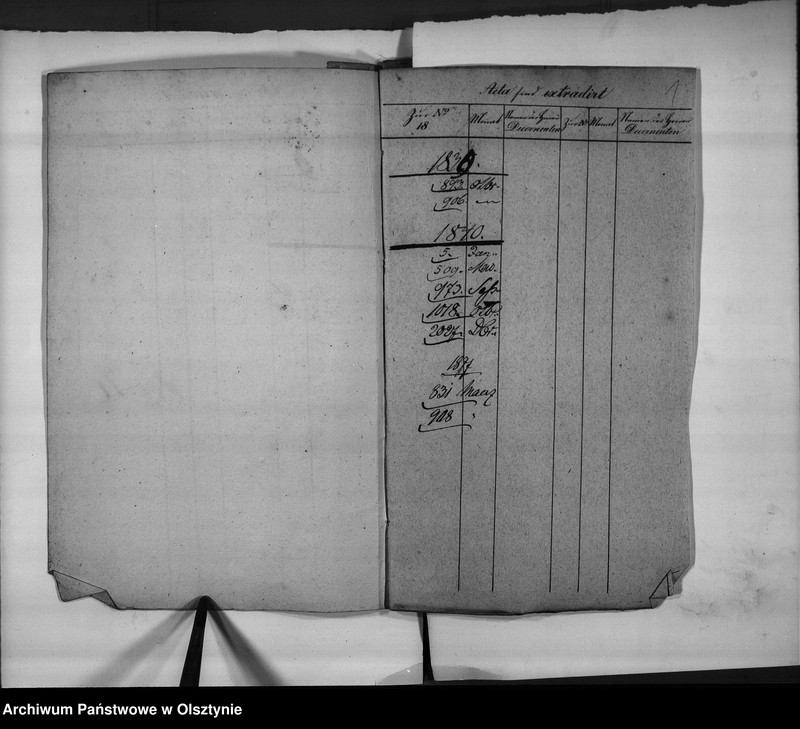 Acta sind extradirt
1
Zur No Monat Namen des Herrn Zur No Monat Namen des Herrn
18 Decernenten Decernenten
1839.
893. Octbr.
906. —
1870.
5. Jan.
509. Mai.
973. Sept
1018. Octbr.
2027. Dcbr.
1877
831 Maerz
908 "
Archiwum Państwowe w Olsztynie